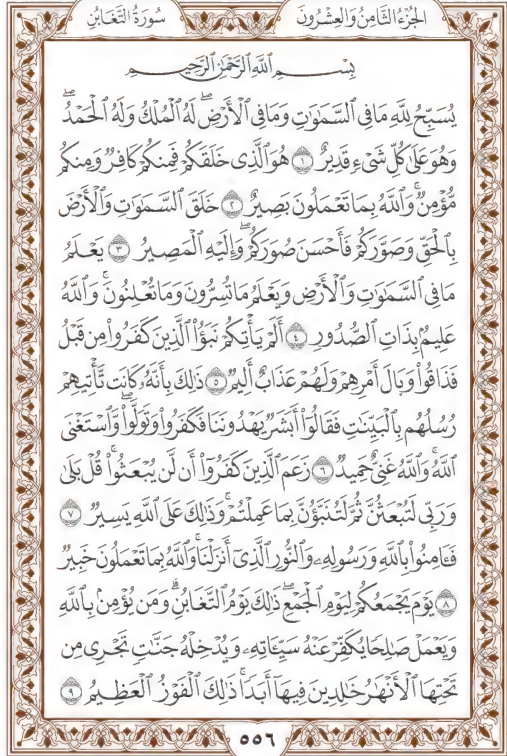 الجُزْءُ الثَّامِنُ وَالعِشْرُونَ سُورَةُ التَّغَابُنِ
بِسْمِ ٱللَّهِ ٱلرَّحْمَٰنِ ٱلرَّحِيمِ
يُسَبِّحُ لِلَّهِ مَا فِي ٱلسَّمَٰوَٰتِ وَمَا فِي ٱلْأَرْضِۖ لَهُ ٱلْمُلْكُ وَلَهُ ٱلْحَمْدُۖ
وَهُوَ عَلَىٰ كُلِّ شَىْءٍ قَدِيرٌ ١ هُوَ ٱلَّذِى خَلَقَكُمْ فَمِنكُمْ كَافِرٌ وَمِنكُم
مُّؤْمِنٌۚ وَٱللَّهُ بِمَا تَعْمَلُونَ بَصِيرٌ ٢ خَلَقَ ٱلسَّمَٰوَٰتِ وَٱلْأَرْضَ
بِٱلْحَقِّ وَصَوَّرَكُمْ فَأَحْسَنَ صُوَرَكُمْۖ وَإِلَيْهِ ٱلْمَصِيرُ ٣ يَعْلَمُ
مَا فِي ٱلسَّمَٰوَٰتِ وَٱلْأَرْضِ وَيَعْلَمُ مَا تُسِرُّونَ وَمَا تُعْلِنُونَۚ وَٱللَّهُ
عَلِيمٌۢ بِذَاتِ ٱلصُّدُورِ ٤ أَلَمْ يَأْتِكُمْ نَبَؤُا۟ ٱلَّذِينَ كَفَرُوا۟ مِن قَبْلُ
فَذَاقُوا۟ وَبَالَ أَمْرِهِمْ وَلَهُمْ عَذَابٌ أَلِيمٌ ٥ ذَٰلِكَ بِأَنَّهُۥ كَانَت تَّأْتِيهِمْ
رُسُلُهُم بِٱلْبَيِّنَٰتِ فَقَالُوٓا۟ أَبَشَرٌ يَهْدُونَنَا فَكَفَرُوا۟ وَتَوَلَّوا۟ۖ وَّٱسْتَغْنَى
ٱللَّهُۚ وَٱللَّهُ غَنِىٌّ حَمِيدٌ ٦ زَعَمَ ٱلَّذِينَ كَفَرُوٓا۟ أَن لَّن يُبْعَثُوا۟ۚ قُلْ بَلَىٰ
وَرَبِّى لَتُبْعَثُنَّ ثُمَّ لَتُنَبَّؤُنَّ بِمَا عَمِلْتُمْۚ وَذَٰلِكَ عَلَى ٱللَّهِ يَسِيرٌ ٧
فَـَٔامِنُوا۟ بِٱللَّهِ وَرَسُولِهِۦ وَٱلنُّورِ ٱلَّذِىٓ أَنزَلْنَاۚ وَٱللَّهُ بِمَا تَعْمَلُونَ خَبِيرٌ
٨ يَوْمَ يَجْمَعُكُمْ لِيَوْمِ ٱلْجَمْعِۖ ذَٰلِكَ يَوْمُ ٱلتَّغَابُنِۗ وَمَن يُؤْمِنۢ بِٱللَّهِ
وَيَعْمَلْ صَٰلِحًا يُكَفِّرْ عَنْهُ سَيِّـَٔاتِهِۦ وَيُدْخِلْهُ جَنَّٰتٍ تَجْرِى مِن
تَحْتِهَا ٱلْأَنْهَٰرُ خَٰلِدِينَ فِيهَآ أَبَدًاۚ ذَٰلِكَ ٱلْفَوْزُ ٱلْعَظِيمُ ٩
٥٥٦